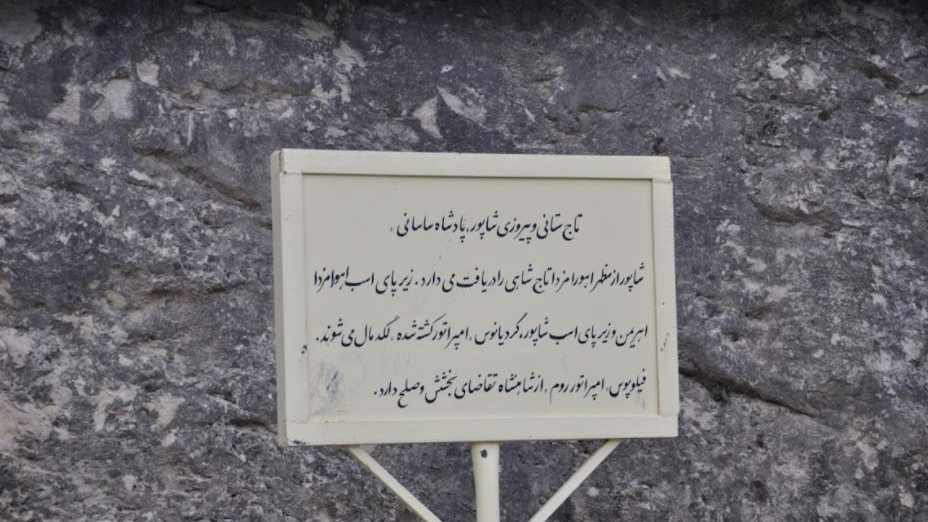 تاج ستانی و پیروزی شاپور، پادشاه ساسانی،
شاپور از مظهر اهورامزدا تاج شاهی را دریافت می دارد. زیر پای اسب اهورامزدا
اهریمن و زیر پای اسب شاپور، گردیانوس، امپراتور کشته شده، لگدمال می شوند.
فیلوپوس، امپراتور روم، از شاهنشاه تقاضای بخشش و صلح دارد.